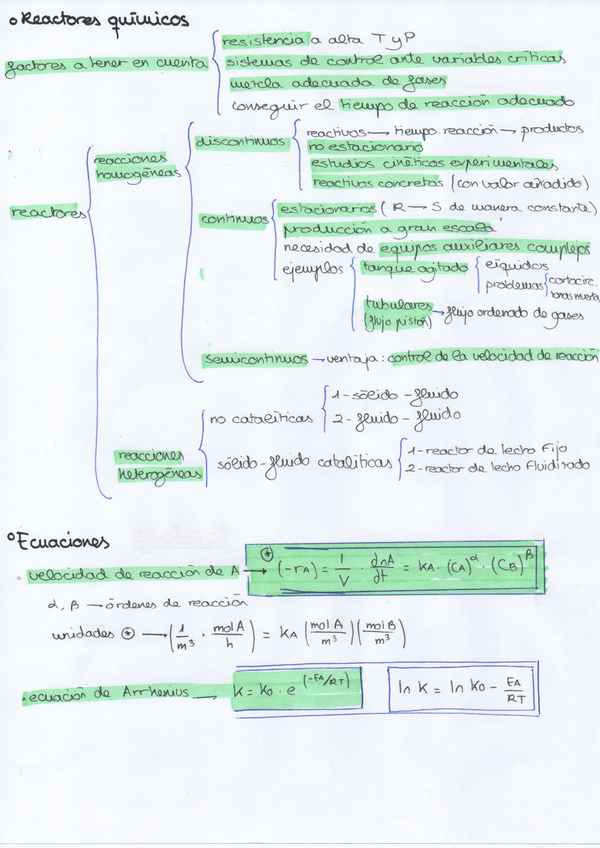 ° Reactores químicos
factores a tener en cuenta
resistencia a alta T y P
sistemas de control ante variables críticas
mezcla adecuada de fases
conseguir el tiempo de reacción adecuado
reactores
reacciones homogéneas
discontinuos
reactivos → tiempo.reacción → productos
no estacionario
estudios cinéticos experimentales
reactivos concretos (con valor añadido)
continuos
estacionarios (R → S de manera constante)
producción a gran escala
necesidad de equipos auxiliares complejos
ejemplos
tanque agitado
líquidos
problemas
cortocirc.
zonas muerta
tubulares (flujo pistón) → flujo ordenado de gases
semicontinuos → ventaja: control de la velocidad de reacción
reacciones heterogéneas
no catalíticas
1-sólido-fluido
2-fluido-fluido
sólido-fluido catalíticas
1-reactor de lecho Fijo
2-reactor de lecho Fluidizado
° Ecuaciones
. velocidad de reacción de A → ⊛ (-rA) = 1/V · dnA/dt = kA · (CA)^α · (CB)^β
α, β → órdenes de reacción
unidades ⊛ → (1/m³ · mol A/h) = kA (mol A/m³)(mol B/m³)
. ecuación de Arrhenius → k = k0 · e^(-EA/RT) ln k = ln k0 - EA/RT